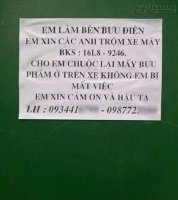 EM LÀM BÊN BƯU ĐIỆN
EM XIN CÁC ANH TRỘM XE MÁY
BKS : 16L8 - 9246.
CHO EM CHUỘC LẠI MẤY BƯU
PHẨM Ở TRÊN XE KHÔNG EM BỊ
MẤT VIỆC
EM XIN CẢM ƠN VÀ HẬU TẠ
LH : 093441 - 098772.